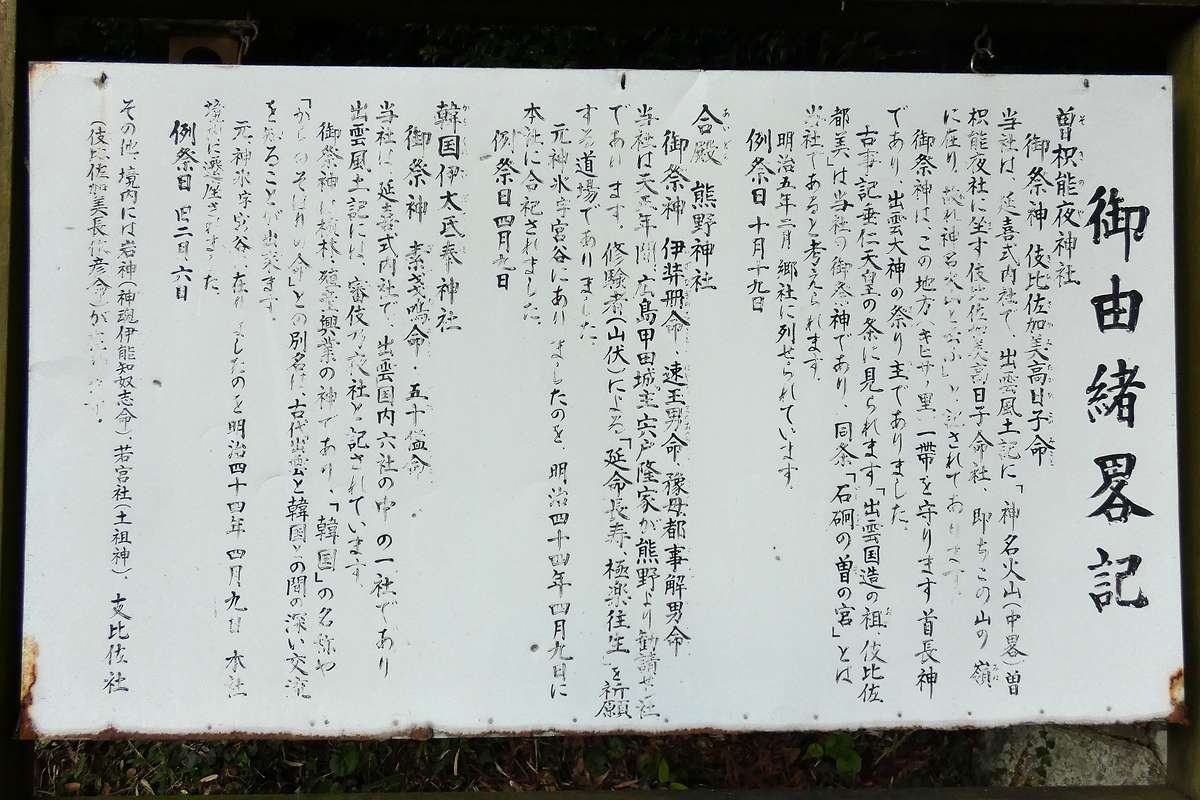 御由緒畧記
曽枳能夜神社
御祭神 伎比佐加美高日子命
当社は、延喜式内社で、出雲風土記に「神名火山(中畧)曽
枳能夜社に坐す伎比佐加美高日子命社、即ちこの山の嶺
に在り、故れ神名火山と云ふ」と記されてあります。
御祭神は、この地方(キヒサの里)一帯を守ります首長神
であり、出雲大神の祭り主でありました。
古事記垂仁天皇の条に見られます「出雲国造の祖、伎比佐
都美は当社の御祭神であり、同条「石硐の曽の宮」とは
当社であると考えられます。
明治五年二月郷社に列せられています。
例祭日 十月十九日
合殿 熊野神社
御祭神 伊弉册命、速玉男命、豫母都事解男命
当社は天正年間、広島甲田城主宍戸隆家が熊野より勧請せし社
であります。修験者(山伏)による「延命長寿、極楽往生」を祈願
する道場でありました。
元神氷字宮谷にありましたのを、明治四十四年四月九日に
本社に合祀されました。
例祭日 四月九日
韓国伊太氐奉神社
御祭神 素戔嗚命・五十猛命
当社は、延喜式内社で、出雲国内六社の中の一社であり
出雲風土記には、審伎乃夜社と記されています。
御祭神は植林、殖産興業の神であり、「韓国」の名称や
「からのそほりの命」との別名は、古代出雲と韓国との間の深い交流
を知ることが出来ます。
元神氷字宮谷に在りましたのを明治四十四年四月九日 本社
境内に遷座されました。
例祭日 六日
その他、境内には岩神(神魂伊能知奴志命)、若宮社(土祖神)、支比佐社
(伎比佐加美長依彦命)が